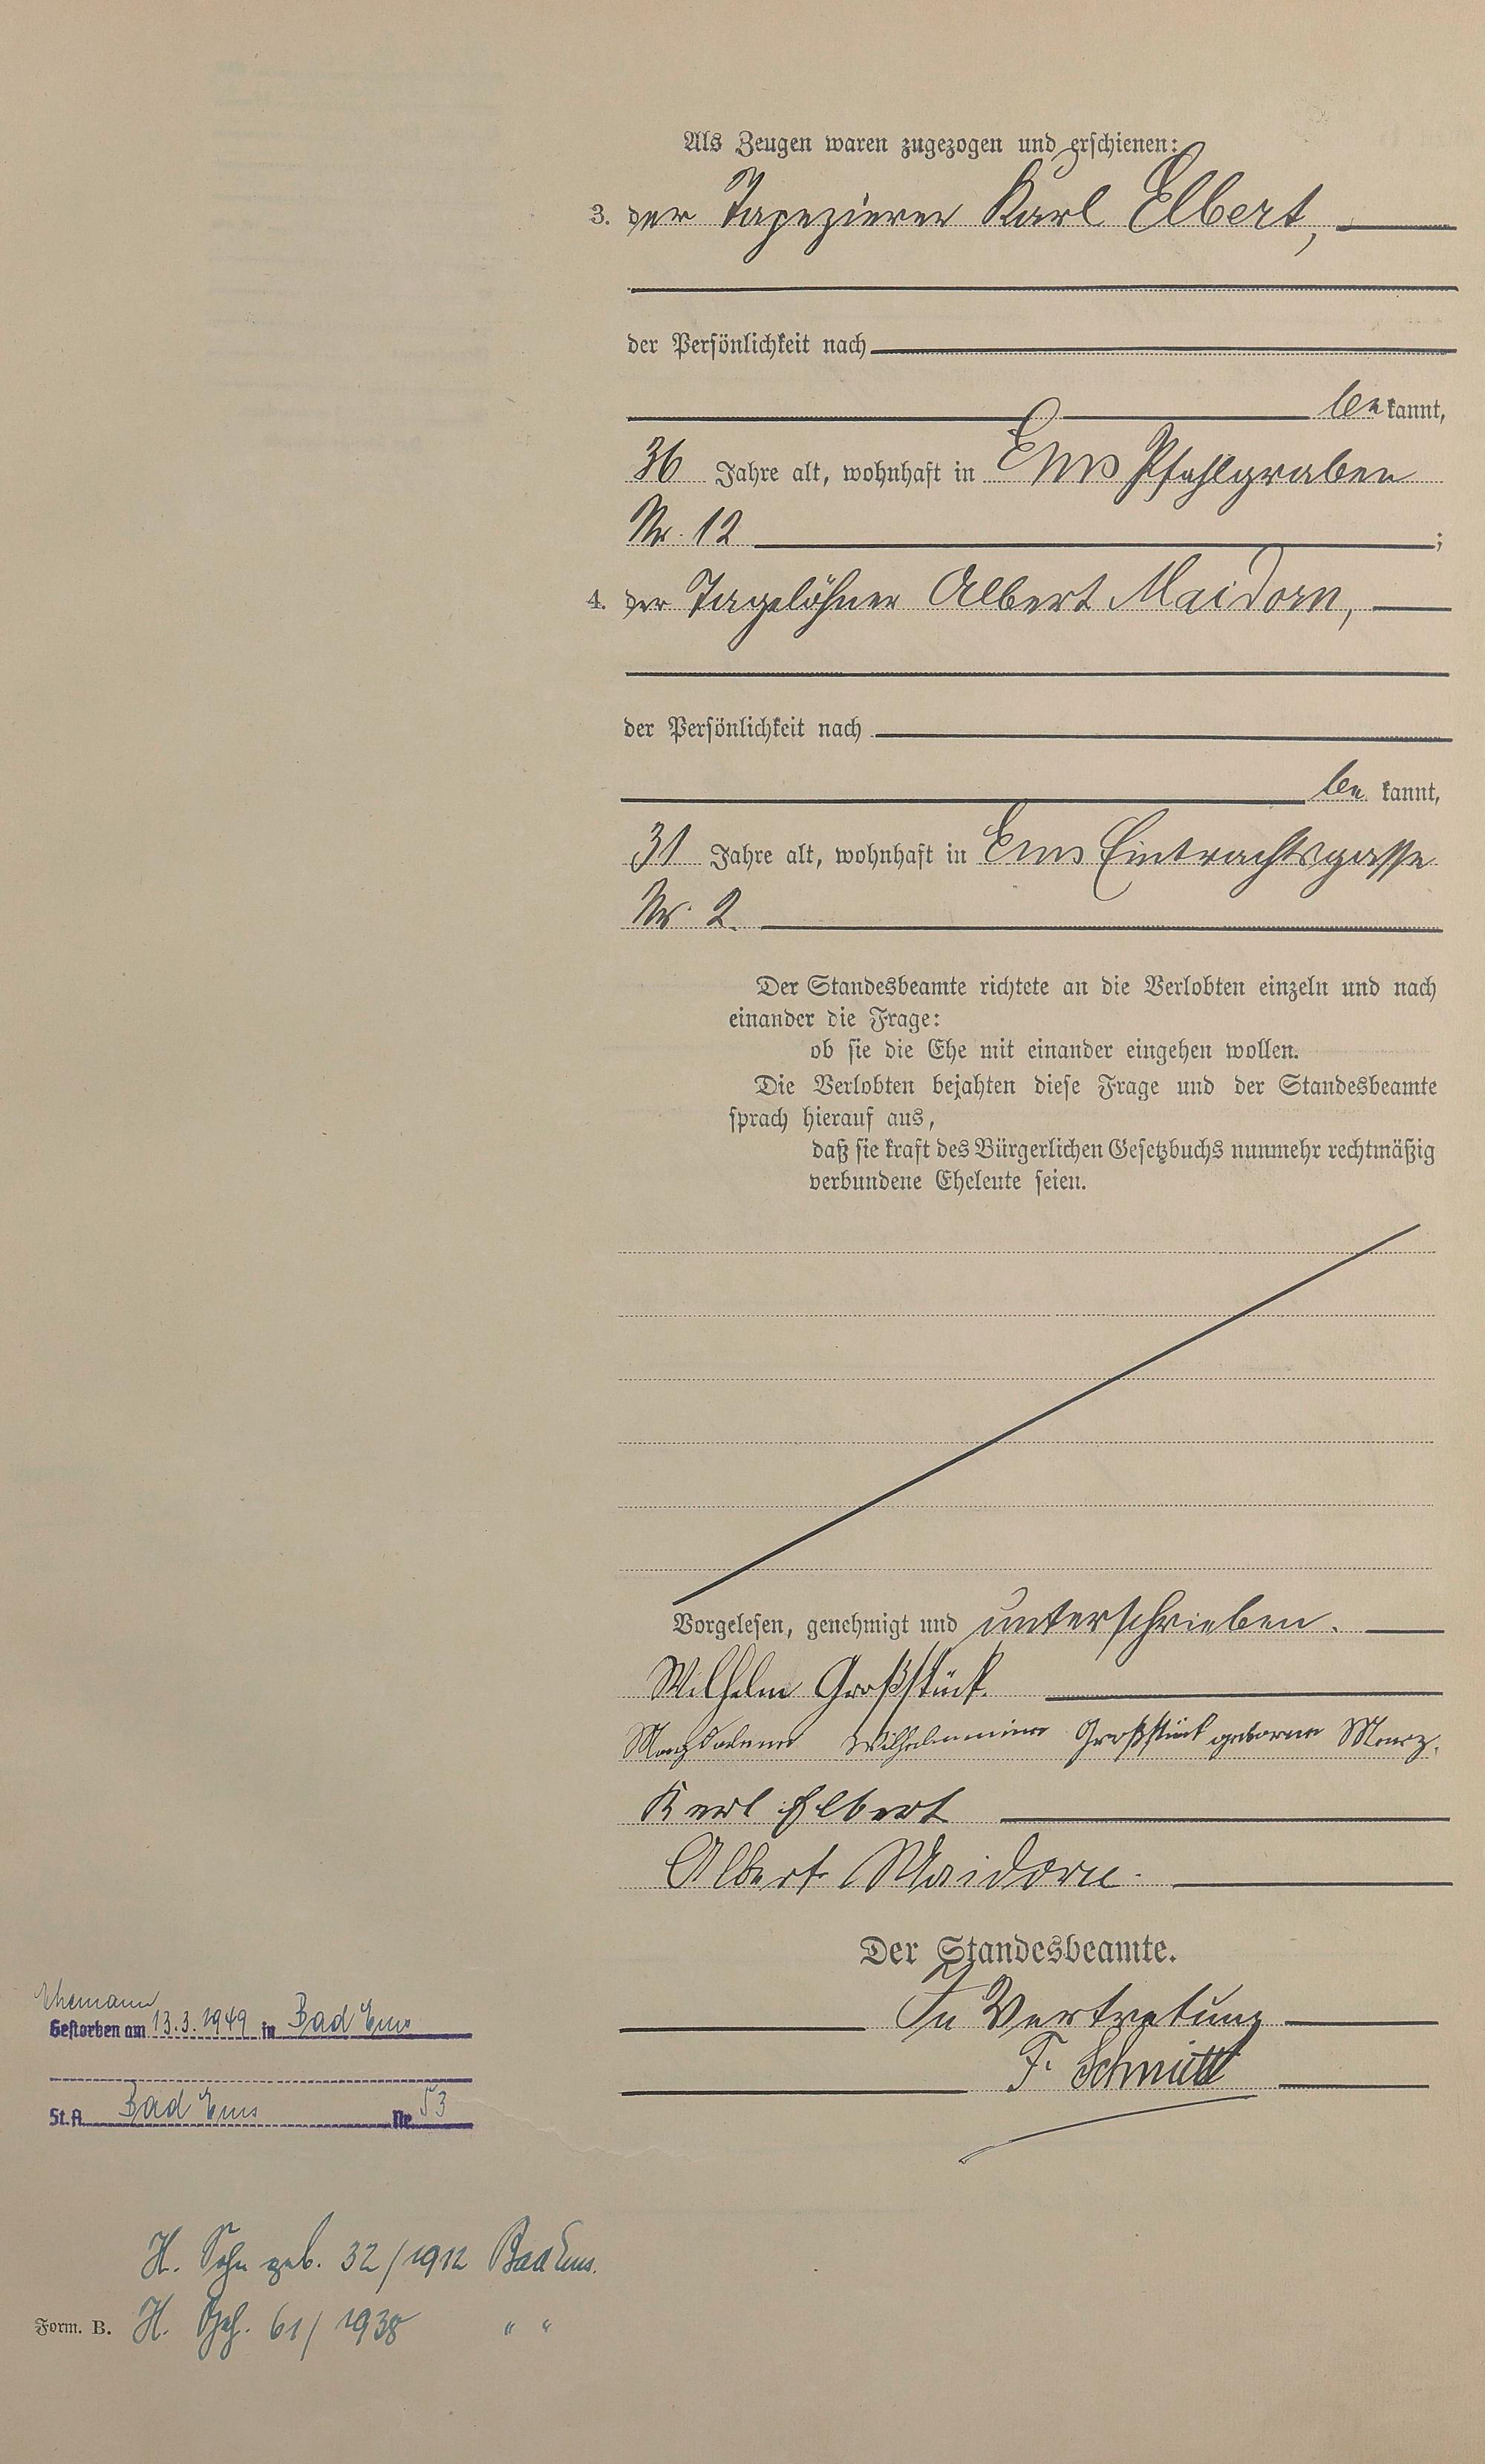 Als Zeugen waren zugezogen und erschienen:
3. der Tapezierer Karl Elbert,
der Persönlichkeit nach
be kannt,
36 Jahre alt, wohnhaft in Ems Pfahlgraben
Nr. 12 ;
4. der Tagelöhner Albert Maidorn,
der Persönlichkeit nach
be kannt,
31 Jahre alt, wohnhaft in Ems Eintrachtsgasse
Nr. 2
Der Standesbeamte richtete an die Verlobten einzeln und nach
einander die Frage:
ob sie die Ehe mit einander eingehen wollen.
Die Verlobten bejahten diese Frage und der Standesbeamte
sprach hierauf aus,
daß sie kraft des Bürgerlichen Gesetzbuchs nunmehr rechtmäßig
verbundene Eheleute seien.
Vorgelesen, genehmigt und unterschrieben.
Wilhelm Großstück.
Magdalena Wilhelmine Großstück geborne
Karl Elbert
Albert Maidorn.
Der Standesbeamte.
In Vertretung
F. Schmitt
Ehemann
Gestorben am 13.3.1949 in Bad Ems
St.A. Bad Ems Nr. 53
H. Sohn geb. 32/1912 Bad Ems.
Form. B. H. 61/1938 " "